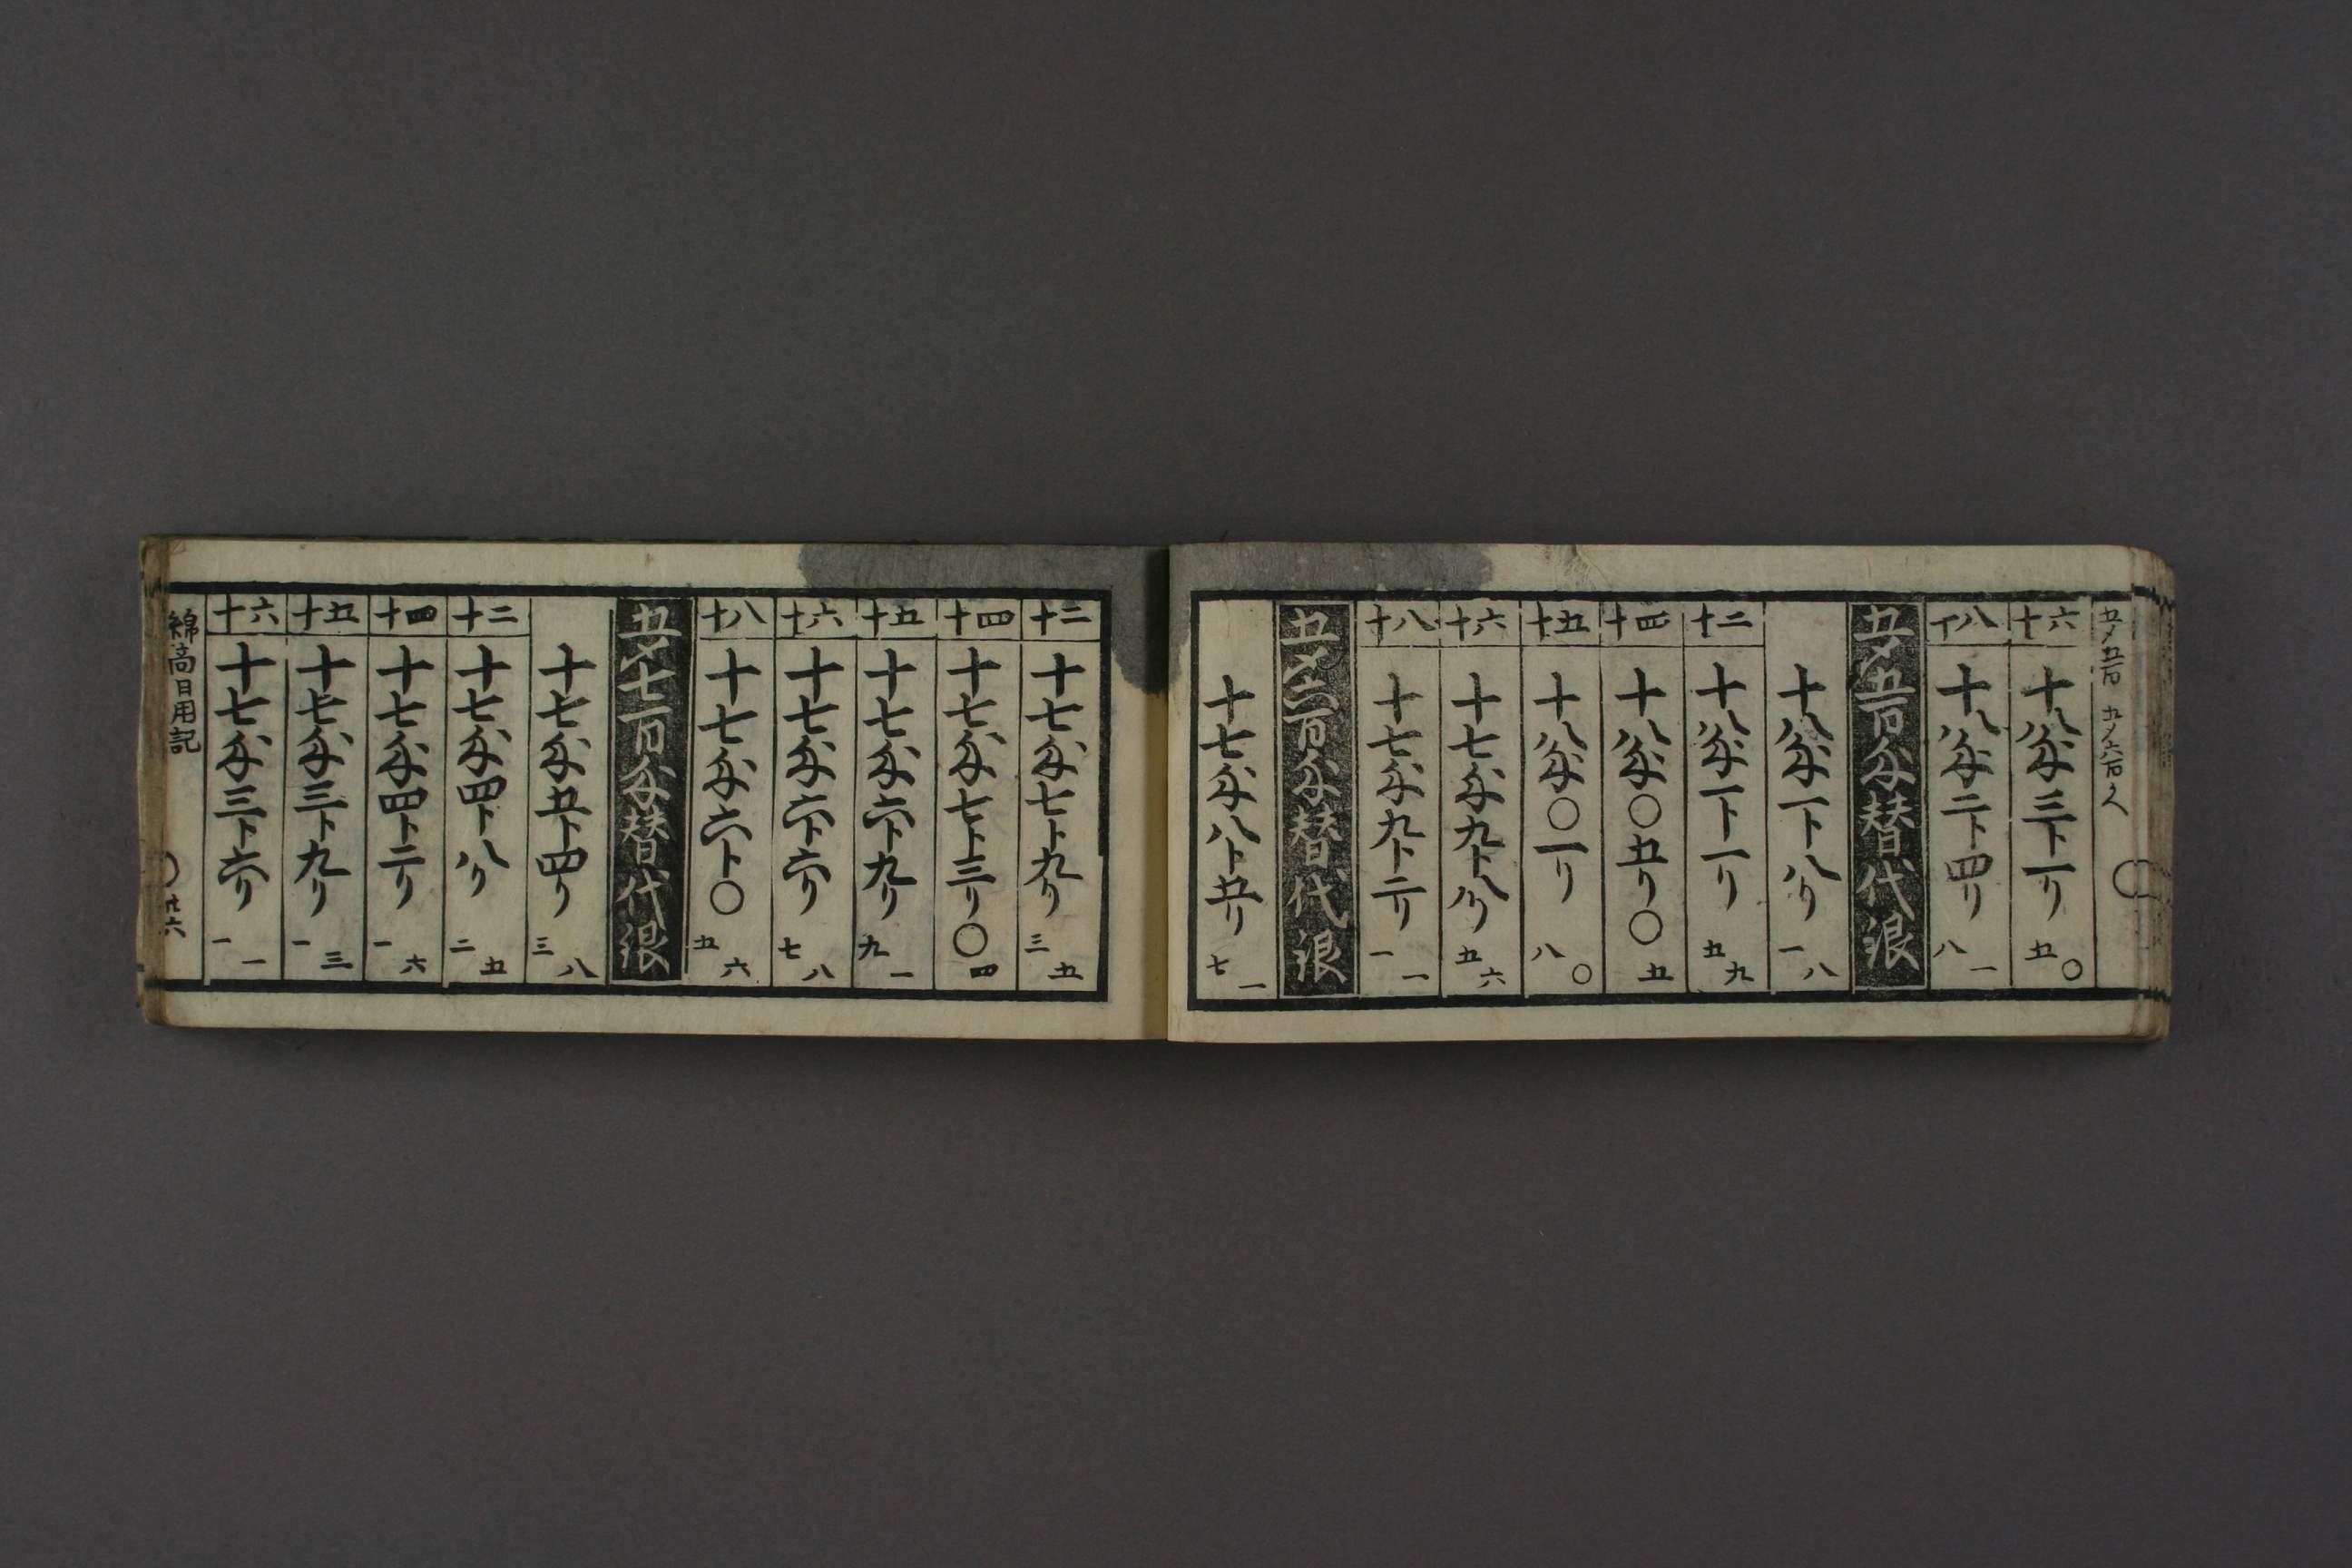 五〆五百 五〆六百
十六 十八匁三卜一リ五〇
十八 十八匁二卜四リ八一
五〆五百匁替代銀
十八匁一卜八リ一八
十二 十八匁一卜一リ五九
十四 十八匁〇五リ〇五
十五 十八匁〇一リ八〇
十六 十七匁九卜八リ五六
十八 十七匁九卜二リ一一
五〆六百匁替代銀
十七匁八卜五リ七一
十二 十七匁七卜九リ三五
十四 十七匁七卜三リ〇四
十五 十七匁六卜九リ九一
十六 十七匁六卜六リ七八
十八 十七匁六卜〇五六
五〆七百匁替代銀
十七匁五卜四リ三八
十二 十七匁四卜八リ二五
十四 十七匁四卜二リ一六
十五 十七匁三卜九リ一三
十六 十七匁三卜六リ一一
綿高日用記 〇 廿六